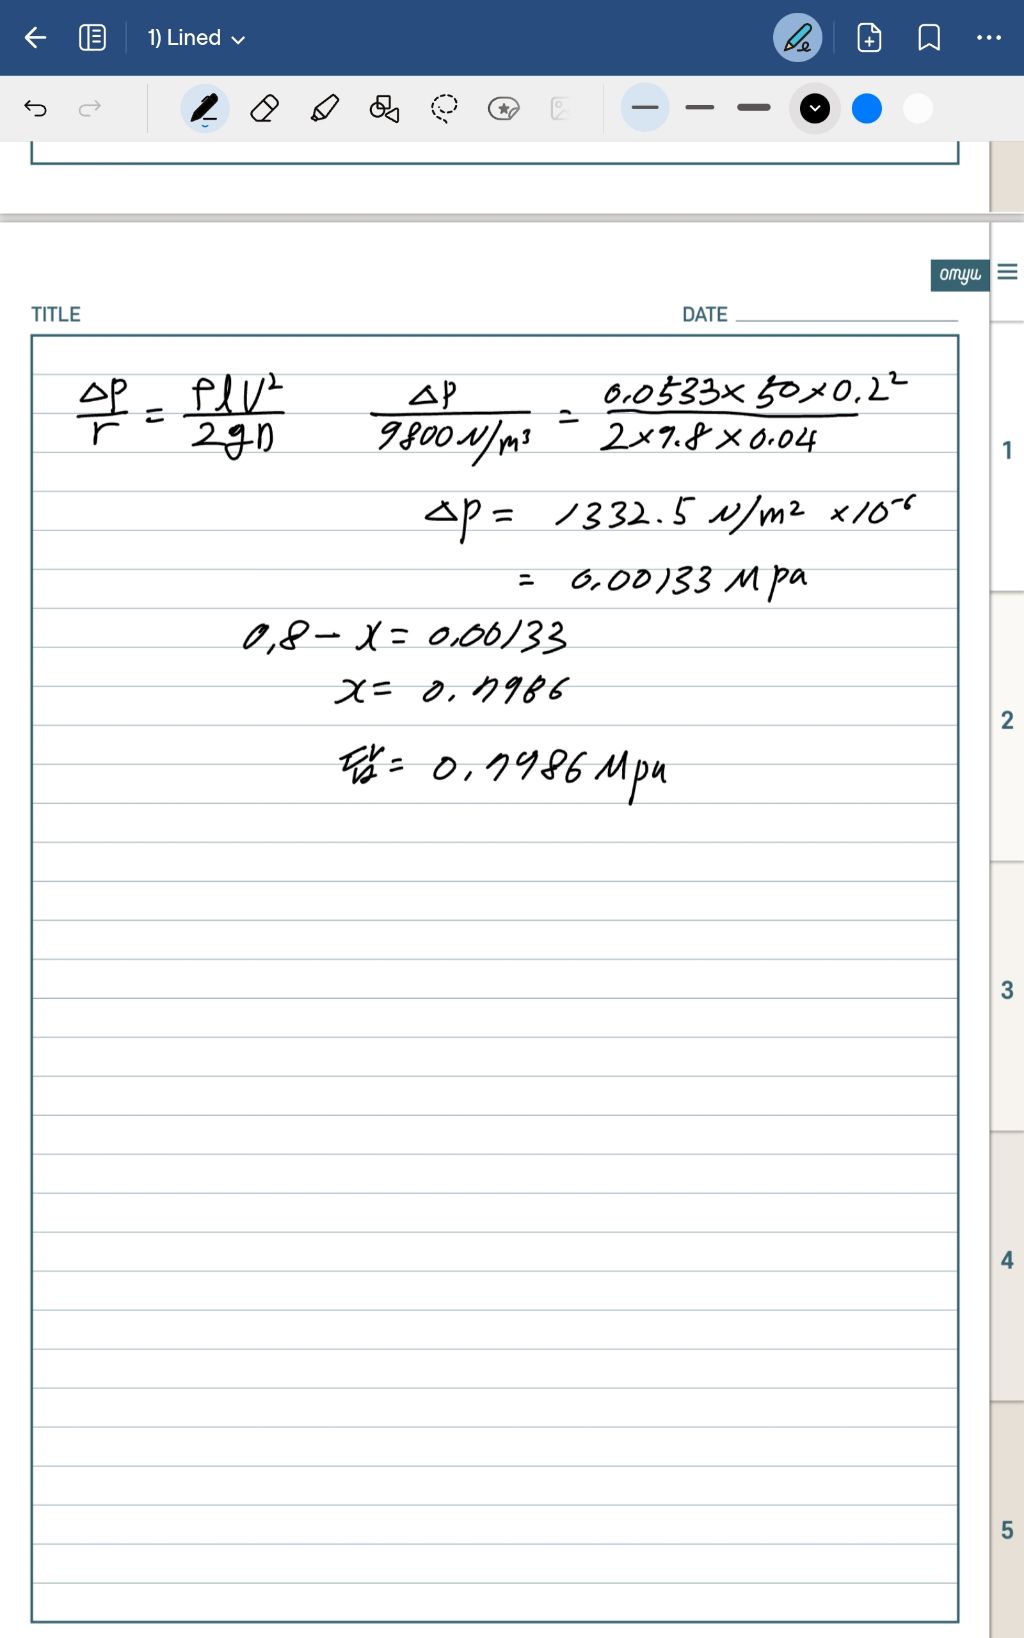 1) Lined
omyu
TITLE DATE
ΔP/r = flV²/2gD ΔP/9800N/m³ = 0.0533×50×0.2²/2×9.8×0.04
ΔP = 1332.5 N/m² ×10⁻⁶
= 0.00133 Mpa
0,8 - x = 0.00133
x = 0.7986
= 0.7986 Mpa
1
2
3
4
5